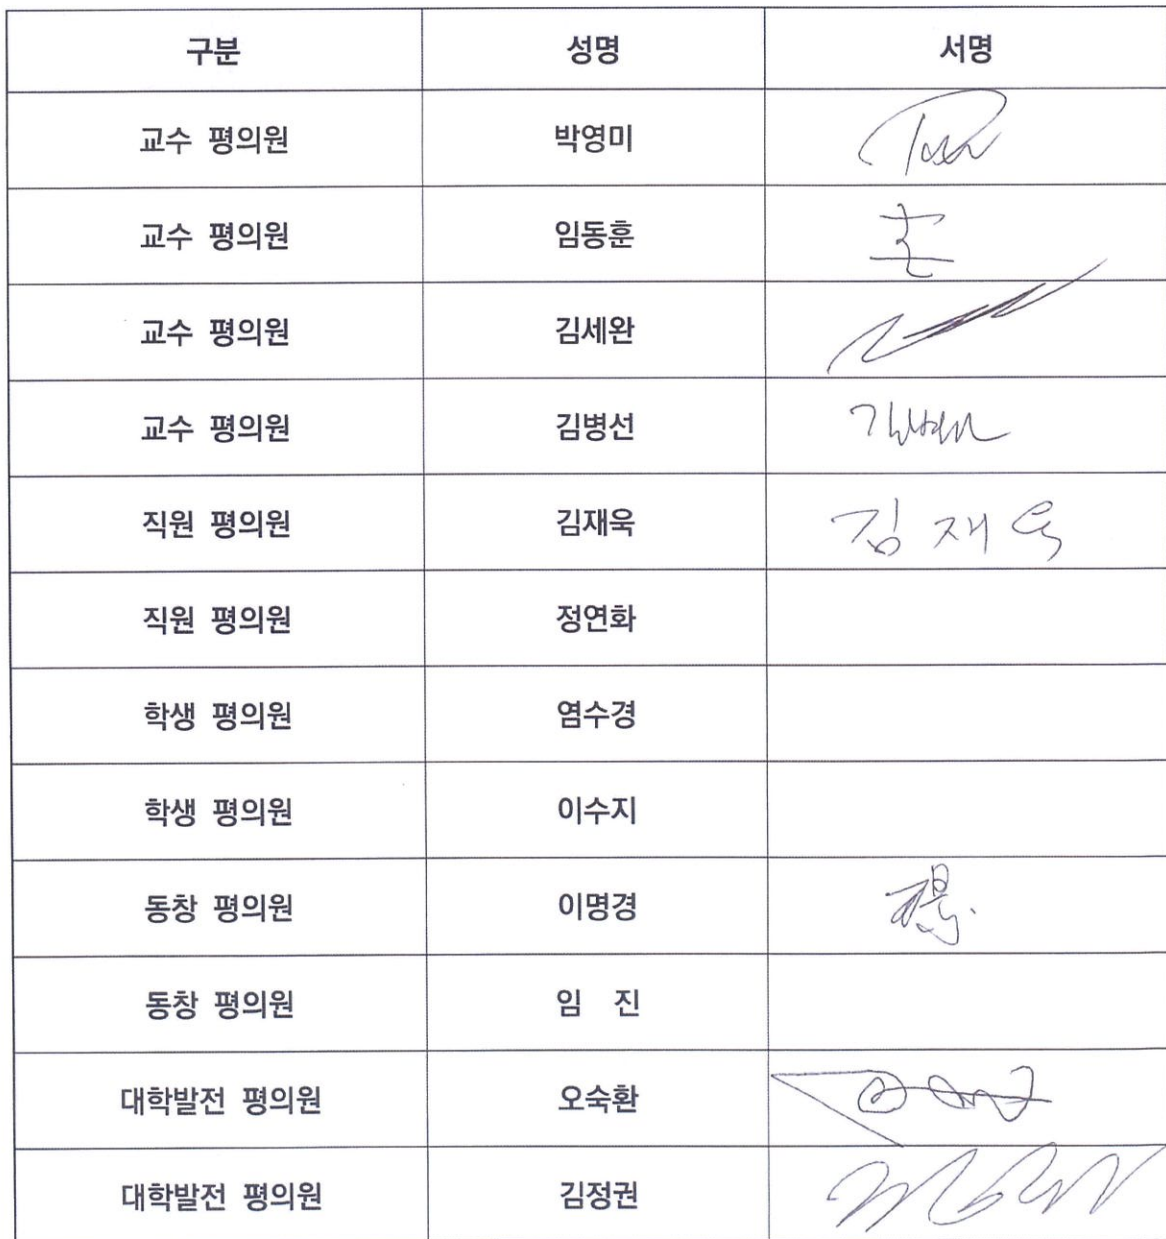 구분 성명 서명
교수 평의원 박영미
교수 평의원 임동훈
교수 평의원 김세완
교수 평의원 김병선
직원 평의원 김재욱 김재욱
직원 평의원 정연화
학생 평의원 염수경
학생 평의원 이수지
동창 평의원 이명경
동창 평의원 임 진
대학발전 평의원 오숙환
대학발전 평의원 김정권